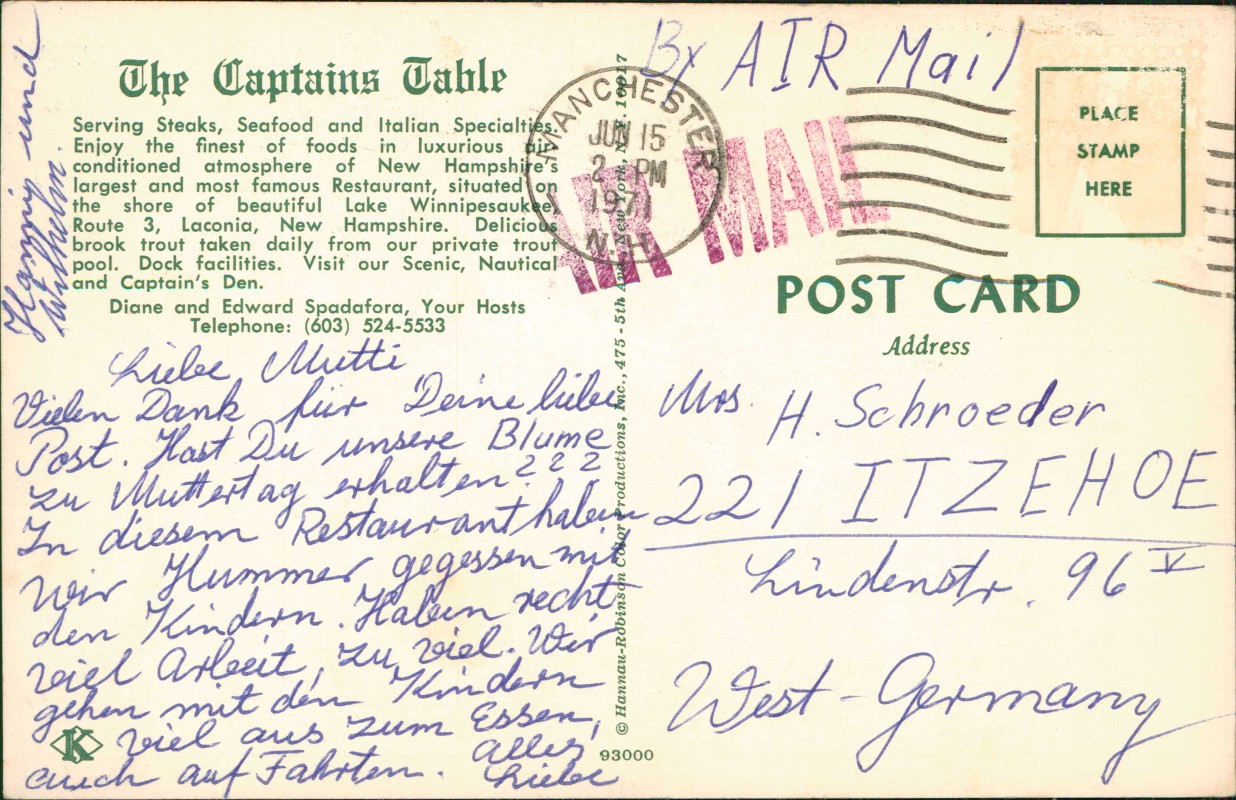 The Captains Table
Serving Steaks, Seafood and Italian Specialties.
Enjoy the finest of foods in luxurious air-
conditioned atmosphere of New Hampshire's
largest and most famous Restaurant, situated on
the shore of beautiful Lake Winnipesaukee,
Route 3, Laconia, New Hampshire. Delicious
brook trout taken daily from our private trout
pool. Dock facilities. Visit our Scenic, Nautical
and Captain's Den.
Diane and Edward Spadafora, Your Hosts
Telephone: (603) 524-5533
Liebe Mutti
Vielen Dank für Deine liebe
Post. Hast Du unsere Blume
zu Muttertag erhalten???
In diesem Restaurant haben
wir Hummer gegessen mit
den Kindern. Haben recht
viel Arbeit, zu viel. Wir
gehen mit den Kindern
viel aus zum Essen,
auch auf Fahrten. Alles
Liebe
und
Wilhelm.
K
© Hannau-Robinson Color Productions, Inc., 475 - 5th Ave., New York, N.Y. 10017
93000
By AIR Mail
MANCHESTER
JUN 15
2 PM
1971
N.H.
AIR MAIL
PLACE
STAMP
HERE
POST CARD
Address
Mrs. H. Schroeder
221 ITZEHOE
Lindenstr. 96 V
West-Germany